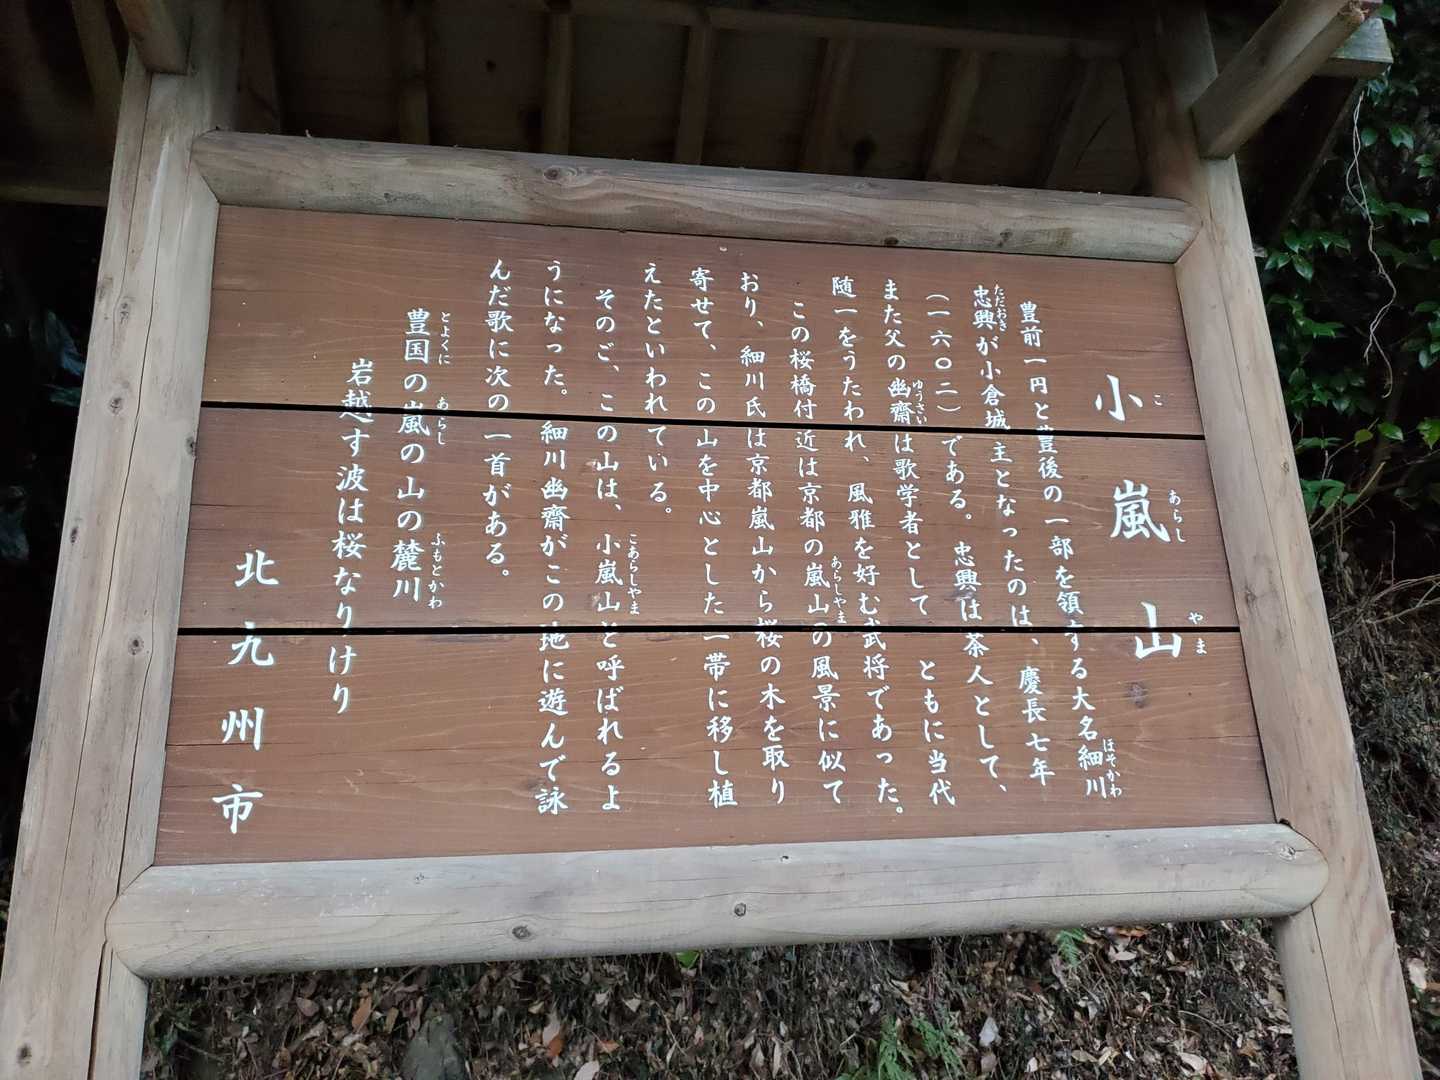 小嵐山
豊前一円と豊後の一部を領する大名細川
忠興が小倉城主となったのは、慶長七年
(一六〇二)である。忠興は茶人として、
また父の幽齋は歌学者として ともに当代
随一をうたわれ、風雅を好む武将であった。
この桜橋付近は京都の嵐山の風景に似て
おり、細川氏は京都嵐山から桜の木を取り
寄せて、この山を中心とした一帯に移し植
えたといわれている。
そのご、この山は、小嵐山と呼ばれるよ
うになった。細川幽齋がこの地に遊んで詠
んだ歌に次の一首がある。
豊国の嵐の山の麓川
岩越す波は桜なりけり
北九州市